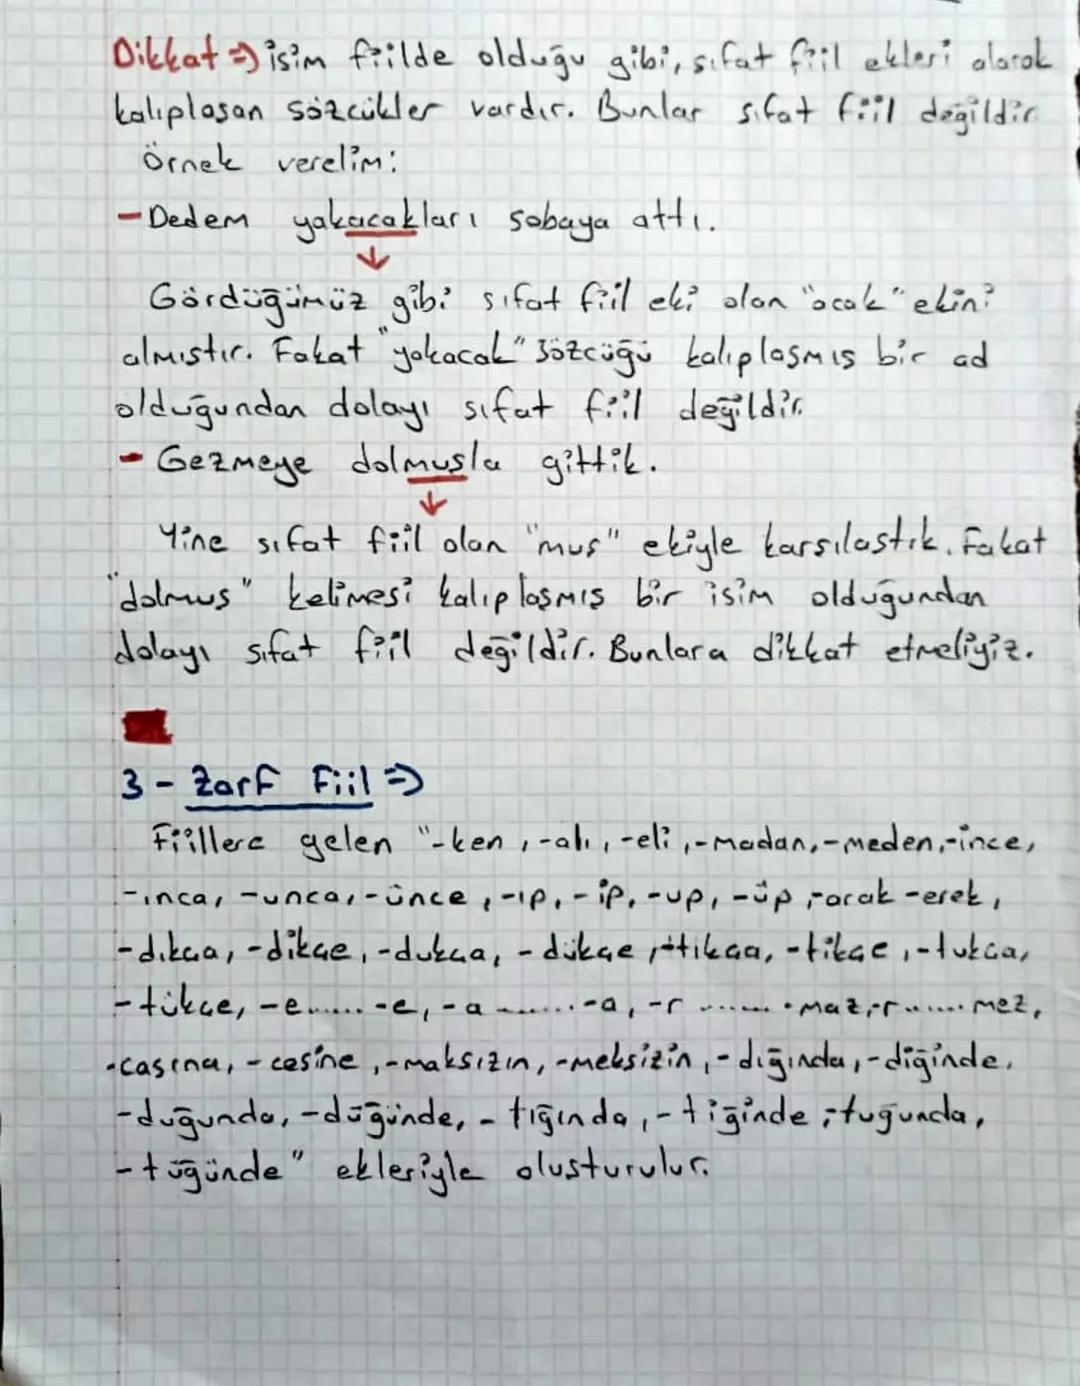 Dikkat => isim fiilde olduğu gibi, sıfat fiil ekleri alarak
kalıplaşan sözcükler vardır. Bunlar sıfat fiil değildir
Örnek verelim:
- Dedem yakacakları sobaya attı.
↓
Gördüğümüz gibi sıfat fiil eki olan "acak" ekini
almıştır. Fakat "yakacak" sözcüğü kalıplaşmış bir ad
olduğundan dolayı sıfat fiil değildir.
- Gezmeye dolmuşla gittik.
↓
Yine sıfat fiil olan "muş" ekiyle karşılaştık. Fakat
"dolmuş" kelimesi kalıplaşmış bir isim olduğundan
dolayı sıfat fiil değildir. Bunlara dikkat etmeliyiz.
3 - Zarf Fiil =>
Fiillere gelen "-ken, -alı, -eli, -madan, -meden, -ince,
-ınca, -unca, -ünce, -ıp, -ip, -up, -üp, -arak -erek,
-dıkça, -dikçe, -dukça, -dükçe, -tıkça, -tikçe, -tukça,
-tükçe, -e......-e, -a .......-a, -r ....... -maz, -r ...... mez,
-casına, -cesine, -maksızın, -meksizin, -dığında, -diğinde,
-duğunda, -düğünde, -tığında, -tiğinde, -tuğunda,
-tüğünde" ekleriyle oluşturulur.